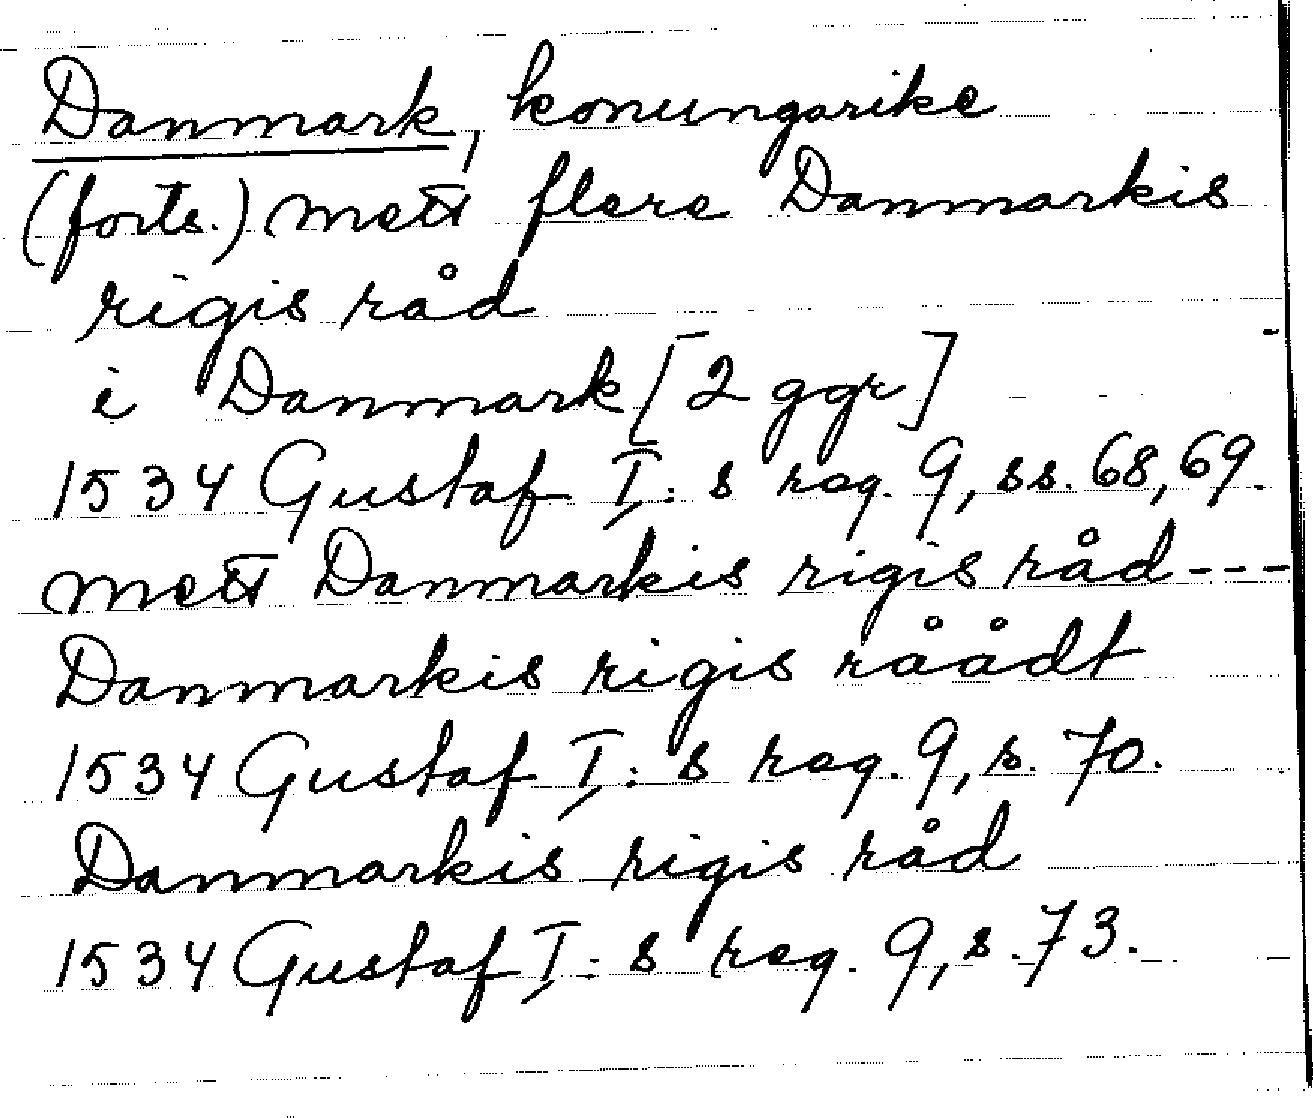 Danmark, konungarike
(forts.) mett flere Danmarkis
rigis råd
i Danmark [2 ggr]
1534 Gustaf I: s reg. 9, ss. 68, 69.
mett Danmarkis rigis råd - - -
Danmarkis rigis råådt
1534 Gustaf I: s reg. 9, s. 70.
Danmarkis rigis råd
1534 Gustaf I: s reg. 9, s. 73.